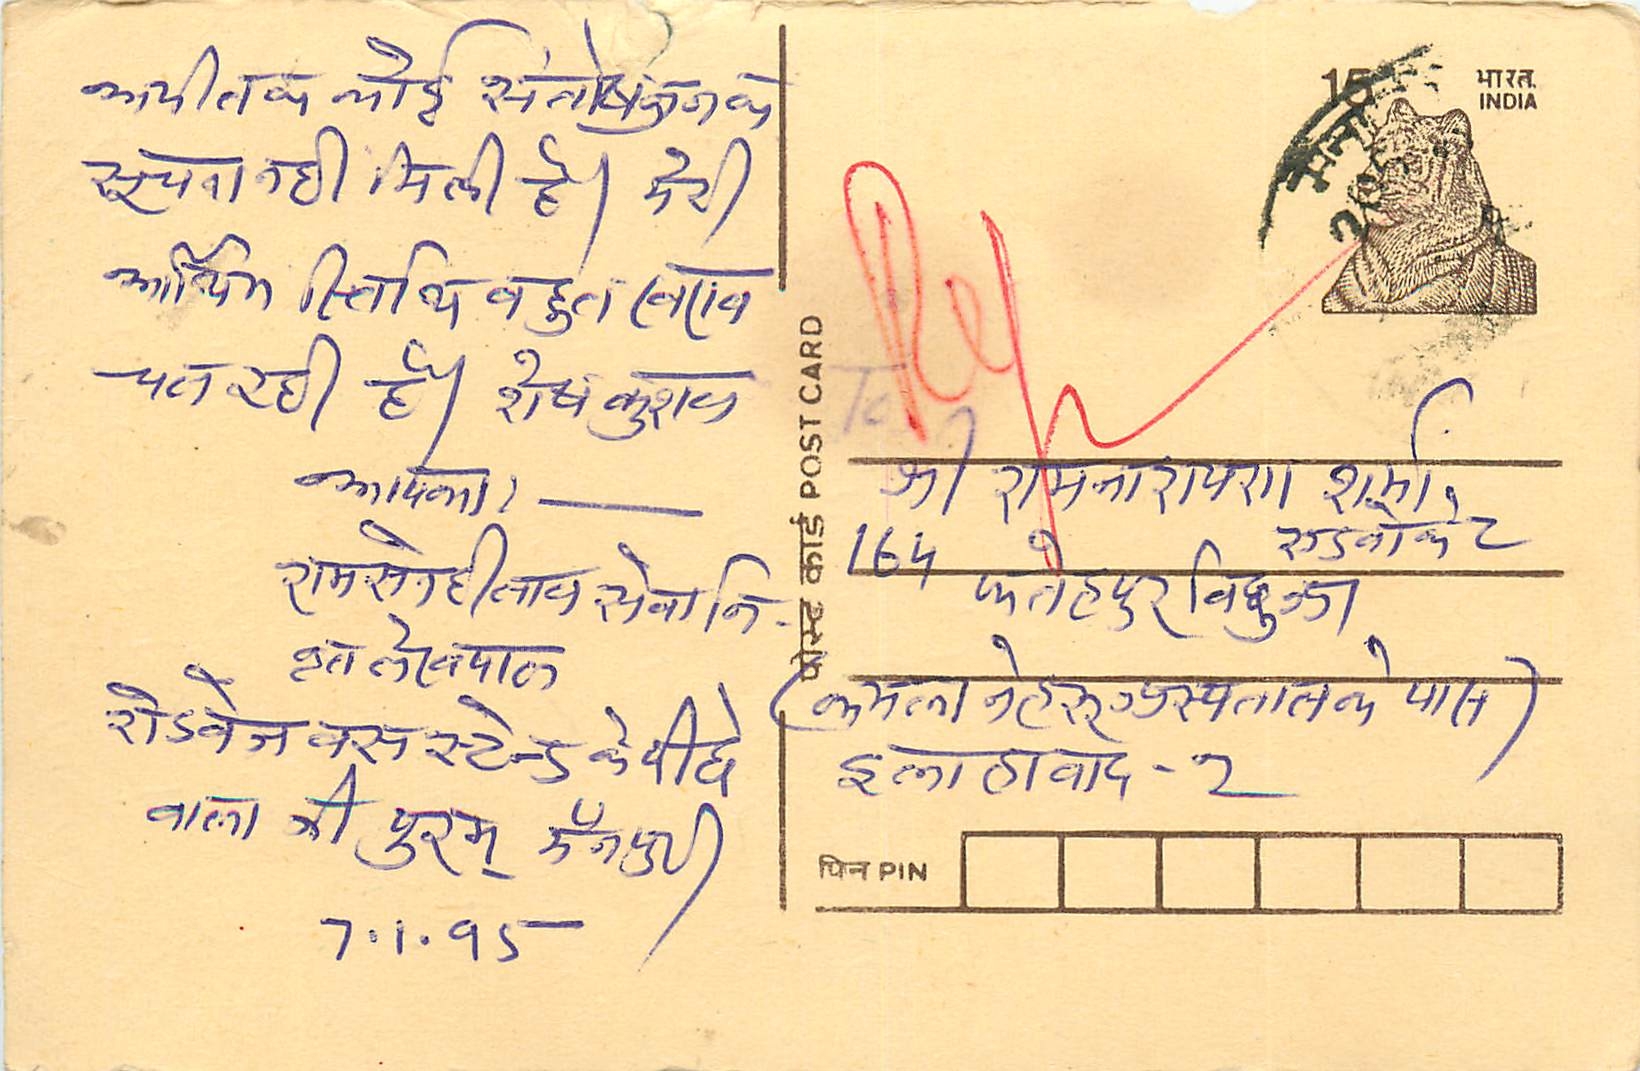 अभी तक कोई संतोषजनक
सूचना नही मिली है। मेरी
आर्थिक स्तिथि बहुत खराब
चल रही है। शेष कुशल
आपका:
रामसनेही लाल सेवानि-
वृत लेखपाल
रोडवेज बस स्टेन्ड के पीछे
वाला श्री पुरम् मैनपुरी
7.1.95
पोस्ट कार्ड POST CARD
15
भारत.
INDIA
Rep
To
श्री रामनारायण शर्मा,
एडवोकेट
164 फतेहपुर विछुआ
(कमला नेहरू अस्पताल के पास)
इलाहावाद - 2
पिन PIN